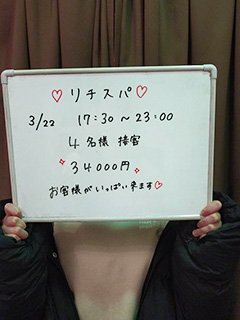 ♡リチスパ♡
3/22 17:30~23:00
4名様 接客
34000円
お客様がいっぱい来ます♡